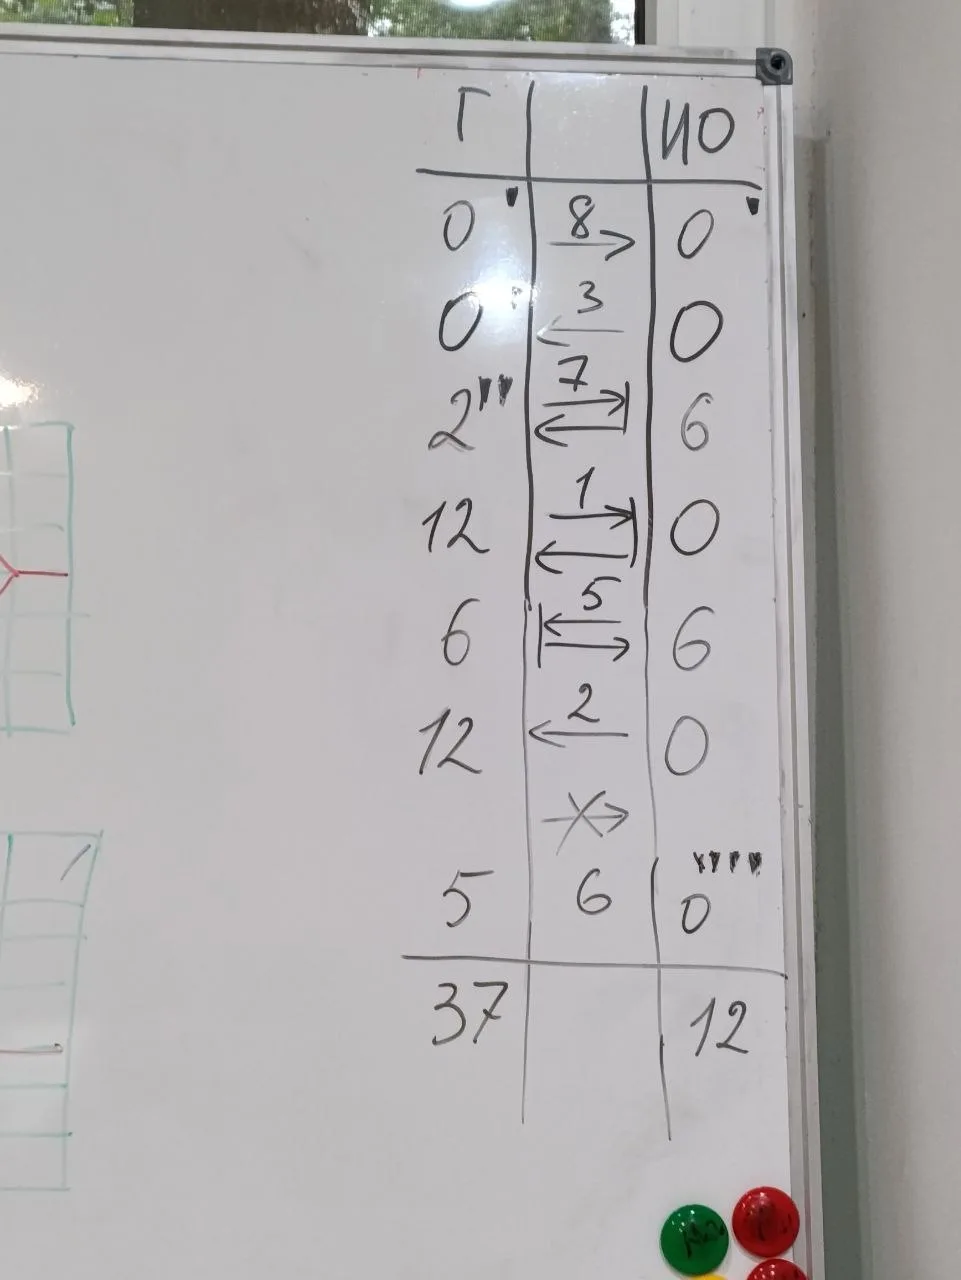 Г ИО
0' 8 → 0'
0 3 ← 0
2'' 7 6
12 1 0
6 5 6
12 2 ← 0
5 6 0''''
37 12